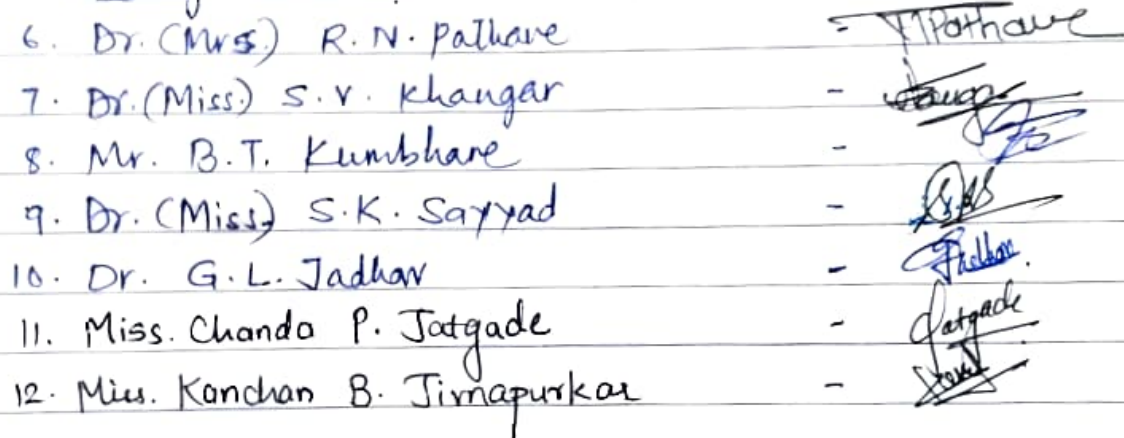 6. Dr. (Mrs.) R. N. Pathave - Pathave
7. Dr. (Miss.) S. V. Khangar -
8. Mr. B. T. Kumbhare -
9. Dr. (Miss) S. K. Sayyad -
10. Dr. G. L. Jadhav -
11. Miss. Chanda P. Jatgade - Jatgade
12. Miss. Kanchan B. Jimapurkar -